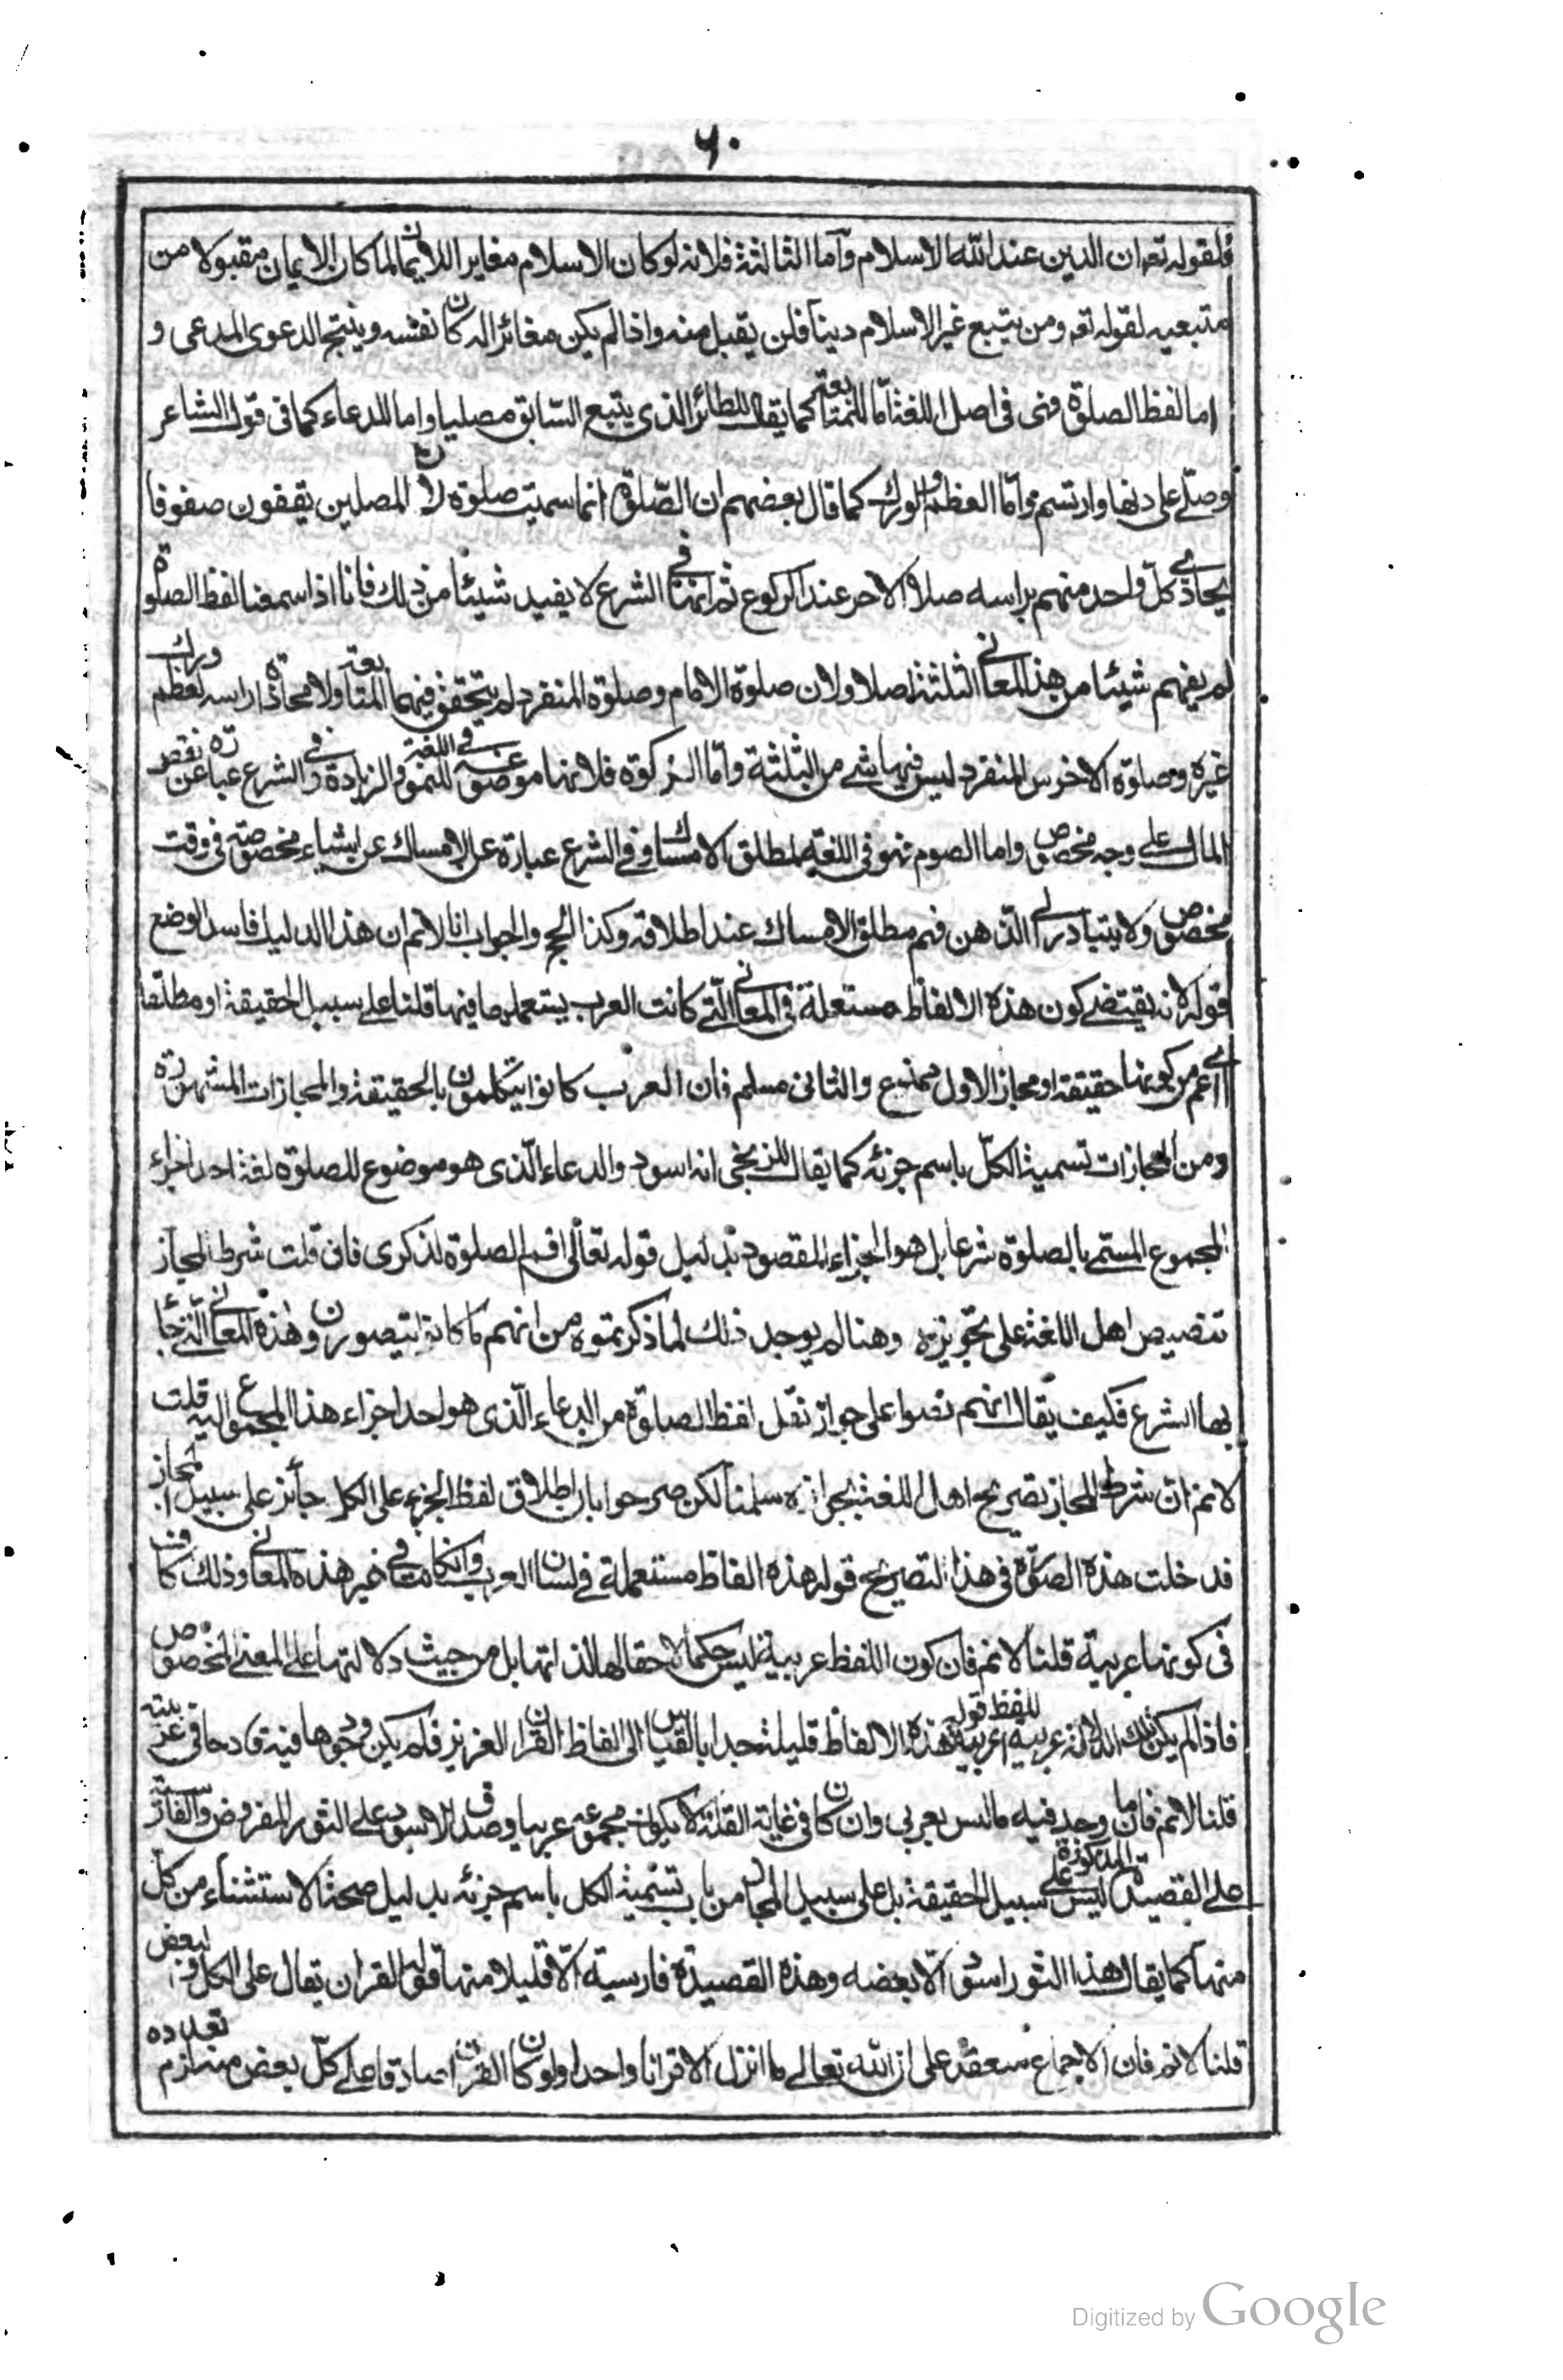 ٦٠
فلقوله تعم ان الدين عند الله الاسلام وآما الثالثة فلانه لوكان الاسلام مغايرا للايمان لما كان الايمان مقبولا من
متبعيه لقوله تعم ومن يتبع غير الاسلام دينا فلن يقبل منه واذا لم يكن مغائرا له كان نفسه وينتج الدعوى المدعى و
اما لفظ الصلوة فهى فى اصل اللغة امّا للمتابعة كما يقال للطائر الذى يتبع السّابق مصليا واما للدعاء كما فى قول الشاعر
وصلّے على دنها وارتسم وامّا العظم الورك كما قال بعضهم ان الصّلوة انما سميت صلوة لان المصلين يقفون صفوفا
يحاذے كلّ واحد منهم براسه صلاه الاخر عند الركوع ثم انها فے الشرع لا يفيد شيئا من ذلك فانا اذا سمعنا لفظ الصلوة
لم يفهم شيئا من هذه المعانے الثلثة اصلا ولان صلوة الامام وصلوة المنفرد لم يتحقق فيهما المتابعة ولا محاذاة راسه لعظم ورك
غيره وصلوة الاخرس المنفرد ليس فيها شے من الثلثة وامّا الزكوة فلانها موضوعة فے اللغة للنمو والزيادة وفے الشرع عبارة عن نقص
المال على وجه مخصوص واما الصوم فهو فى اللغة لمطلق الامساك وفے الشرع عبارة عن الامساك عن اشياء مخصوصة فى وقت
مخصوص ولا يتبادر الے الذهن فهم مطلق الامساك عند اطلاقه وكذا الحج والجواب انا لانم ان هذا الدليل فاسد الوضع
قوله لانه يقتضے كون هذه الالفاظ مستعملة فى المعانے الّتے كانت العرب يستعملها فيها قلنا على سبيل الحقيقة او مطلقا
اے اعم من كونها حقيقة او مجاز الاول ممنوع والثانى مسلم فان العرب كانوا يتكلمون بالحقيقة والمجازات المشهورة
ومن المجازات تسمية الكلّ باسم جزئه كما يقال للزنجى انه اسود والدعاء الّذى هو موضوع للصلوة لغة احد اجزاء
المجموع المسمے بالصلوة شرعا بل هو الجزاء المقصود بدليل قوله تعالى اقم الصلوة لذكرى فان قلت شرط المجاز
تنصيص اهل اللغة على تجويزه وهنا لم يوجد ذلك لما ذكرتموه من انهم ما كانوا يتصورون هذه المعانے الّتے جا
بها الشرع فكيف يقال انهم نصوا على جواز نقل لفظ الصلوة من الدعاء الّذى هو احد اجزاء هذا المجموع اليه قلت
لانم ان شرط المجاز تصريح اهل اللغة بجوازه سلمنا لكن صرحوا بان اطلاق لفظ الجزء على الكل جائز على سبيل المجاز
فدخلت هذه الصورة فى هذا التصريح قوله هذه الفاظ مستعملة فے لسان العرب وان كانت فے غير هذه المعانے وذلك كاف
فى كونها عربية قلنا لانم فان كون اللفظ عربية ليس حكما لاحقا لها لذاتها بل من حيث دلالتها على المعنے المخصوص
فاذا لم يكن تلك الدلالة عربية لم يكن اللفظ عربية قوله هذه الالفاظ قليلة جدا بالقياس الى الفاظ القران العزيز فلم يكن وجودها فيه قادحا فى عربيته
قلنا لانم فان ما وجد فيه ما ليس بعربى وان كان فى غاية القلة لا يكون مجموعه عربيا وصدق الاسود على الثور المفروض والفارسية
على القصيدة المذكورة ليس على سبيل الحقيقة بل على سبيل المجاز من باب تسمية الكل باسم جزئه بدليل صحة الاستثناء من كل
منهما كما يقال هذا الثور اسود الّا بعضه وهذه القصيدة فارسية الّا قليلا منها قوله القران يقال على الكل والبعض
قلنا لانم فان الاجماع منعقد على ان الله تعالے ما انزل الا قرانا واحدا ولو كان القران صادقا على كلّ بعض منه لزم تعدده
Digitized by Google